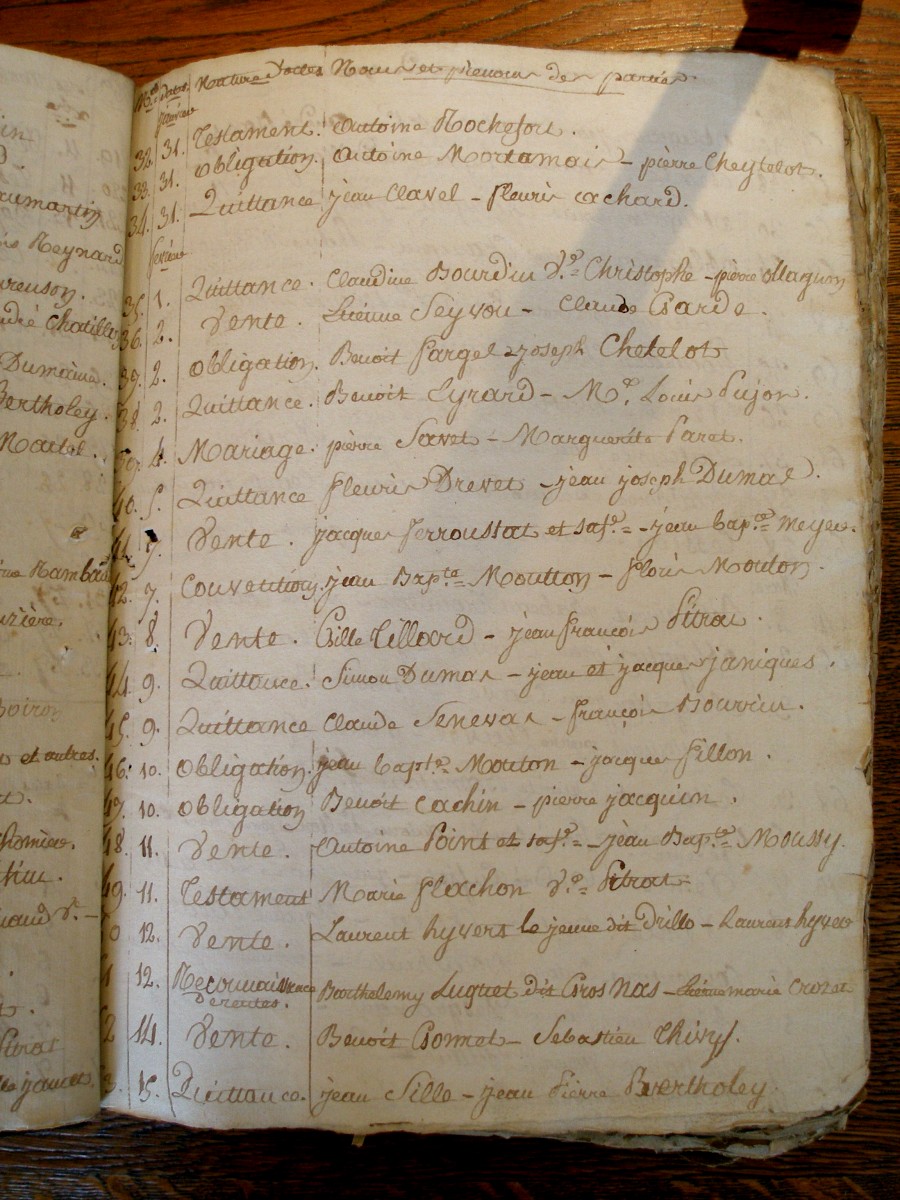 aumartin
Reynard
Chatillon
Dumaine.
Bertholey.
Martel.
et autres.
Nos dates. Nature d'actes Noms et prenoms des parties
janvier
32. 31. Testament. Antoine Rochefort.
33. 31. Obligation. Antoine Mortamais - pierre Cheytelot.
34. 31. Quittance jean Clavel - fleuris cachard.
fevrier
35. 1. Quittance. Claudine Bourdin Ve. Christophe - pierre Magnin
36. 2. Vente. Etienne Seyvou - Claude Garde.
37. 2. Obligation. Benoit fargel joseph Chetelot
38. 2. Quittance. Benoit Eyrard - Mre. Louis Pujon.
39. 4. Mariage. pierre Savet - Marguerite Paret.
40. 5. Quittance fleuris Drevet - jean joseph Dumas.
41. 7. Vente. jacques ferroussat et sa fe. - jean bapte. Meyer.
42. 7. Convention. jean Bapte. Moutton - floris Mouton.
43. 8. Vente. Gille Tillard - jean françois Pitrat.
44. 9. Quittance. Simon Dumas - jean et jacques janiques.
45. 9. Quittance Claude Senevas - françois Bouvier.
46. 10. Obligation. jean bapte. Mouton - jacques fillon.
47. 10. Obligation Benoit Cachin - pierre jacquin.
48. 11. Vente. Antoine Point et sa fe. - jean Bapte. Moussy.
49. 11. Testament Marie flachon Ve. Pitrat
0 12. Vente. Laurent hyvert le jeune dit Drillo - Laurent hyver
12. Reconnaissance Barthelemy Luquet dit Gros Nas - Etienne marie Crozet
De rentes.
2 14. Vente. Benoit Gonnet - Sebastien Thivy.
3. 15. Quittance. jean Sille - jean Pierre Bertholey.